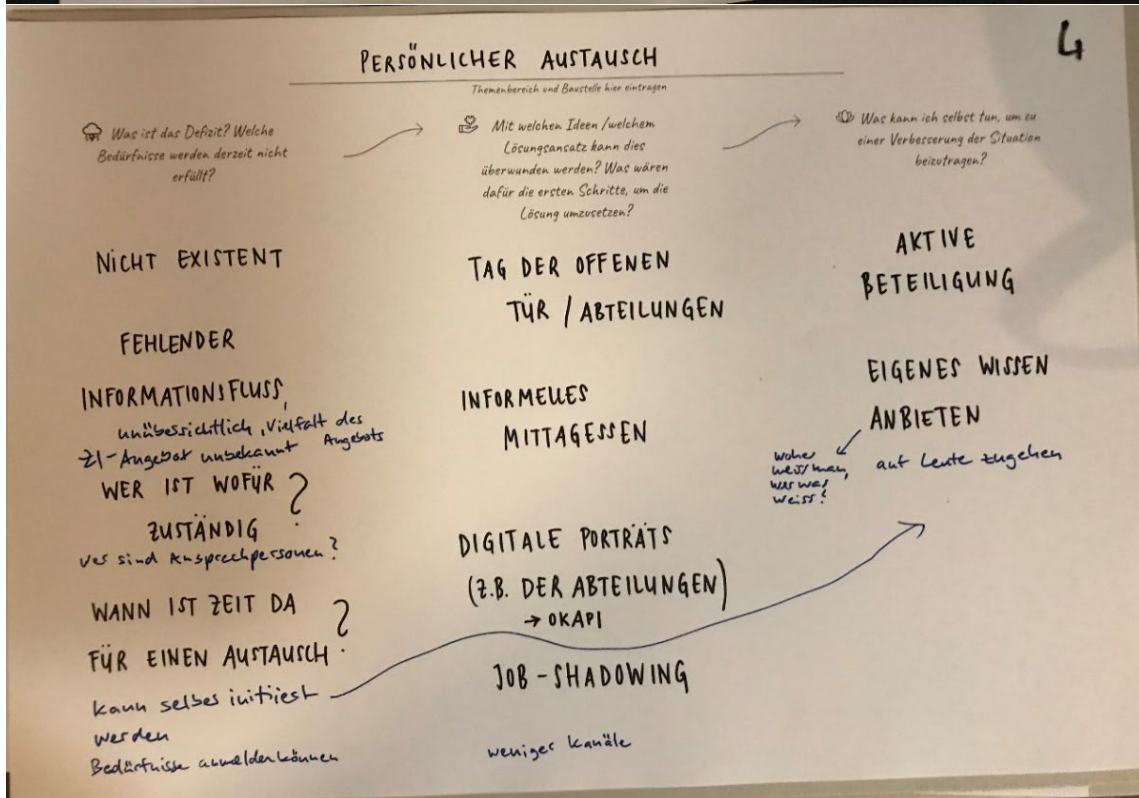 4
PERSÖNLICHER AUSTAUSCH
Themenbereich und Baustelle hier eintragen
Was ist das Defizit? Welche
Bedürfnisse werden derzeit nicht
erfüllt?
NICHT EXISTENT
FEHLENDER
INFORMATIONSFLUSS,
unübersichtlich, Vielfalt des
ZI-Angebot unbekannt Angebots
WER IST WOFÜR
ZUSTÄNDIG ?
wer sind Ansprechpersonen?
WANN IST ZEIT DA
FÜR EINEN AUSTAUSCH ?
kann selber initiiert
werden
Bedürfnisse anmelden können
Mit welchen Ideen /welchem
Lösungsansatz kann dies
überwunden werden? Was wären
dafür die ersten Schritte, um die
Lösung umzusetzen?
TAG DER OFFENEN
TÜR / ABTEILUNGEN
INFORMELLES
MITTAGESSEN
DIGITALE PORTRÄTS
(Z.B. DER ABTEILUNGEN)
→ OKAPI
JOB-SHADOWING
weniger Kanäle
Was kann ich selbst tun, um zu
einer Verbesserung der Situation
beizutragen?
AKTIVE
BETEILIGUNG
EIGENES WISSEN
ANBIETEN
woher
weiss man,
wer was
weiss?
auf Leute zugehen